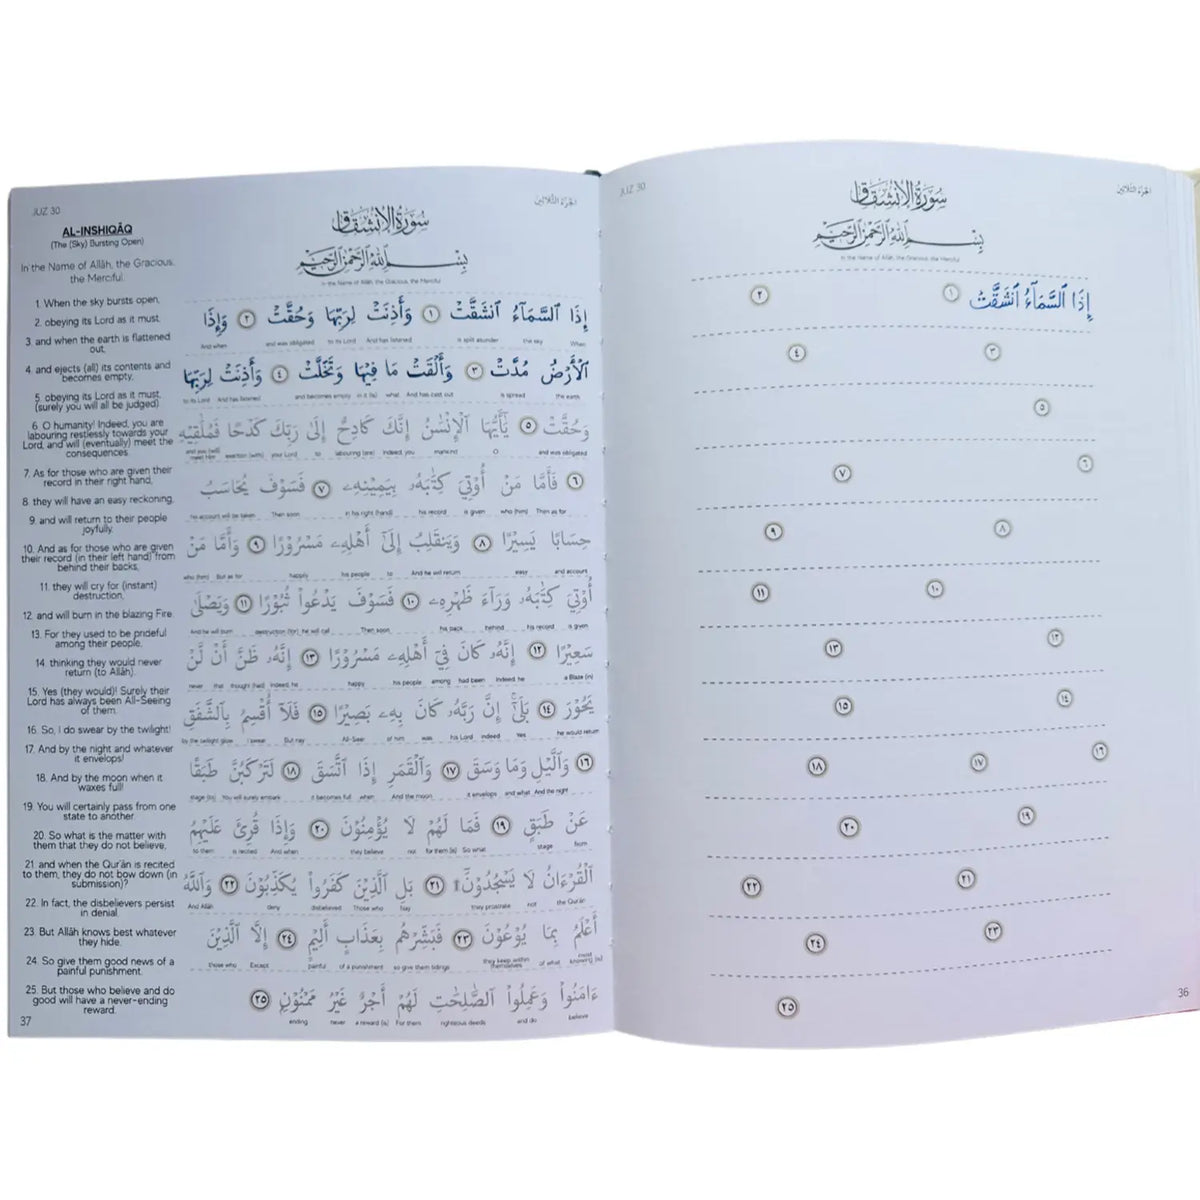 JUZ 30
الجزء الثلاثين
سُورَةُ الِانْشِقَاقِ
بِسْمِ اللَّهِ الرَّحْمَٰنِ الرَّحِيمِ
In the Name of Allāh, the Gracious, the Merciful
إِذَا ٱلسَّمَآءُ ٱنشَقَّتْ ١ ٢
٣ ٤
٥
٦ ٧
٨ ٩
١٠ ١١
١٢ ١٣
١٤ ١٥
١٦ ١٧ ١٨
١٩ ٢٠
٢١ ٢٢
٢٣ ٢٤
٢٥
36
JUZ 30
الجزء الثلاثين
AL-INSHIQĀQ
(The (Sky) Bursting Open)
In the Name of Allāh, the Gracious,
the Merciful.
1. When the sky bursts open,
2. obeying its Lord as it must,
3. and when the earth is flattened
out,
4. and ejects (all) its contents and
becomes empty,
5. obeying its Lord as it must,
(surely you will all be judged)
6. O humanity! Indeed, you are
labouring restlessly towards your
Lord, and will (eventually) meet the
consequences.
7. As for those who are given their
record in their right hand,
8. they will have an easy reckoning,
9. and will return to their people
joyfully.
10. And as for those who are given
their record (in their left hand) from
behind their backs,
11. they will cry for (instant)
destruction,
12. and will burn in the blazing Fire.
13. For they used to be prideful
among their people,
14. thinking they would never
return (to Allāh).
15. Yes (they would)! Surely their
Lord has always been All-Seeing
of them.
16. So, I do swear by the twilight!
17. And by the night and whatever
it envelops!
18. And by the moon when it
waxes full!
19. You will certainly pass from one
state to another.
20. So what is the matter with
them that they do not believe,
21. and when the Qur'ān is recited
to them, they do not bow down (in
submission)?
22. In fact, the disbelievers persist
in denial.
23. But Allāh knows best whatever
they hide.
24. So give them good news of a
painful punishment.
25. But those who believe and do
good will have a never-ending
reward.
37
سُورَةُ الِانْشِقَاقِ
بِسْمِ اللَّهِ الرَّحْمَٰنِ الرَّحِيمِ
In the Name of Allāh, the Gracious, the Merciful
إِذَا ٱلسَّمَآءُ ٱنشَقَّتْ ١ وَأَذِنَتْ لِرَبِّهَا وَحُقَّتْ ٢ وَإِذَا
And when and was obligated to its Lord And has listened is split asunder the sky When
ٱلْأَرْضُ مُدَّتْ ٣ وَأَلْقَتْ مَا فِيهَا وَتَخَلَّتْ ٤ وَأَذِنَتْ لِرَبِّهَا
to its Lord And has listened and becomes empty in it (is) what And has cast out is spread the earth
وَحُقَّتْ ٥ يَٰٓأَيُّهَا ٱلْإِنسَٰنُ إِنَّكَ كَادِحٌ إِلَىٰ رَبِّكَ كَدْحًا فَمُلَٰقِيهِ
and you (will) meet Him exertion (with) your Lord to labouring (are) Indeed, you mankind O and was obligated
٦ فَأَمَّا مَنْ أُوتِىَ كِتَٰبَهُۥ بِيَمِينِهِۦ ٧ فَسَوْفَ يُحَاسَبُ
his account will be taken Then soon in his right (hand) his record is given who (him) Then as for
حِسَابًا يَسِيرًا ٨ وَيَنقَلِبُ إِلَىٰٓ أَهْلِهِۦ مَسْرُورًا ٩ وَأَمَّا مَنْ
who (him) But as for happily his people to And he will return easy and account
أُوتِىَ كِتَٰبَهُۥ وَرَآءَ ظَهْرِهِۦ ١٠ فَسَوْفَ يَدْعُوا۟ ثُبُورًا ١١ وَيَصْلَىٰ
And he will burn destruction (for) he will call Then soon his back behind his record is given
سَعِيرًا ١٢ إِنَّهُۥ كَانَ فِىٓ أَهْلِهِۦ مَسْرُورًا ١٣ إِنَّهُۥ ظَنَّ أَن لَّن
never that thought (had) Indeed, he happy his people among had been Indeed, he a Blaze (in)
يَحُورَ ١٤ بَلَىٰٓ إِنَّ رَبَّهُۥ كَانَ بِهِۦ بَصِيرًا ١٥ فَلَآ أُقْسِمُ بِٱلشَّفَقِ
by the twilight glow I swear But nay All-Seer of him was his Lord indeed Yes he would return
١٦ وَٱلَّيْلِ وَمَا وَسَقَ ١٧ وَٱلْقَمَرِ إِذَا ٱتَّسَقَ ١٨ لَتَرْكَبُنَّ طَبَقًا
stage (to) You will surely embark it becomes full when And the moon it envelops and what And the night
عَن طَبَقٍ ١٩ فَمَا لَهُمْ لَا يُؤْمِنُونَ ٢٠ وَإِذَا قُرِئَ عَلَيْهِمُ
to them is recited And when they believe not for them (is) So what stage from
ٱلْقُرْءَانُ لَا يَسْجُدُونَ ۩ ٢١ بَلِ ٱلَّذِينَ كَفَرُوا۟ يُكَذِّبُونَ ٢٢ وَٱللَّهُ
And Allāh deny disbelieved Those who Nay they prostrate not the Qurān
أَعْلَمُ بِمَا يُوعُونَ ٢٣ فَبَشِّرْهُم بِعَذَابٍ أَلِيمٍ ٢٤ إِلَّا ٱلَّذِينَ
those who Except painful of a punishment so give them tidings they keep within themselves of what most knowing (is)
ءَامَنُوا۟ وَعَمِلُوا۟ ٱلصَّٰلِحَٰتِ لَهُمْ أَجْرٌ غَيْرُ مَمْنُونٍ ٢٥
ending never a reward (is) For them righteous deeds and do believe